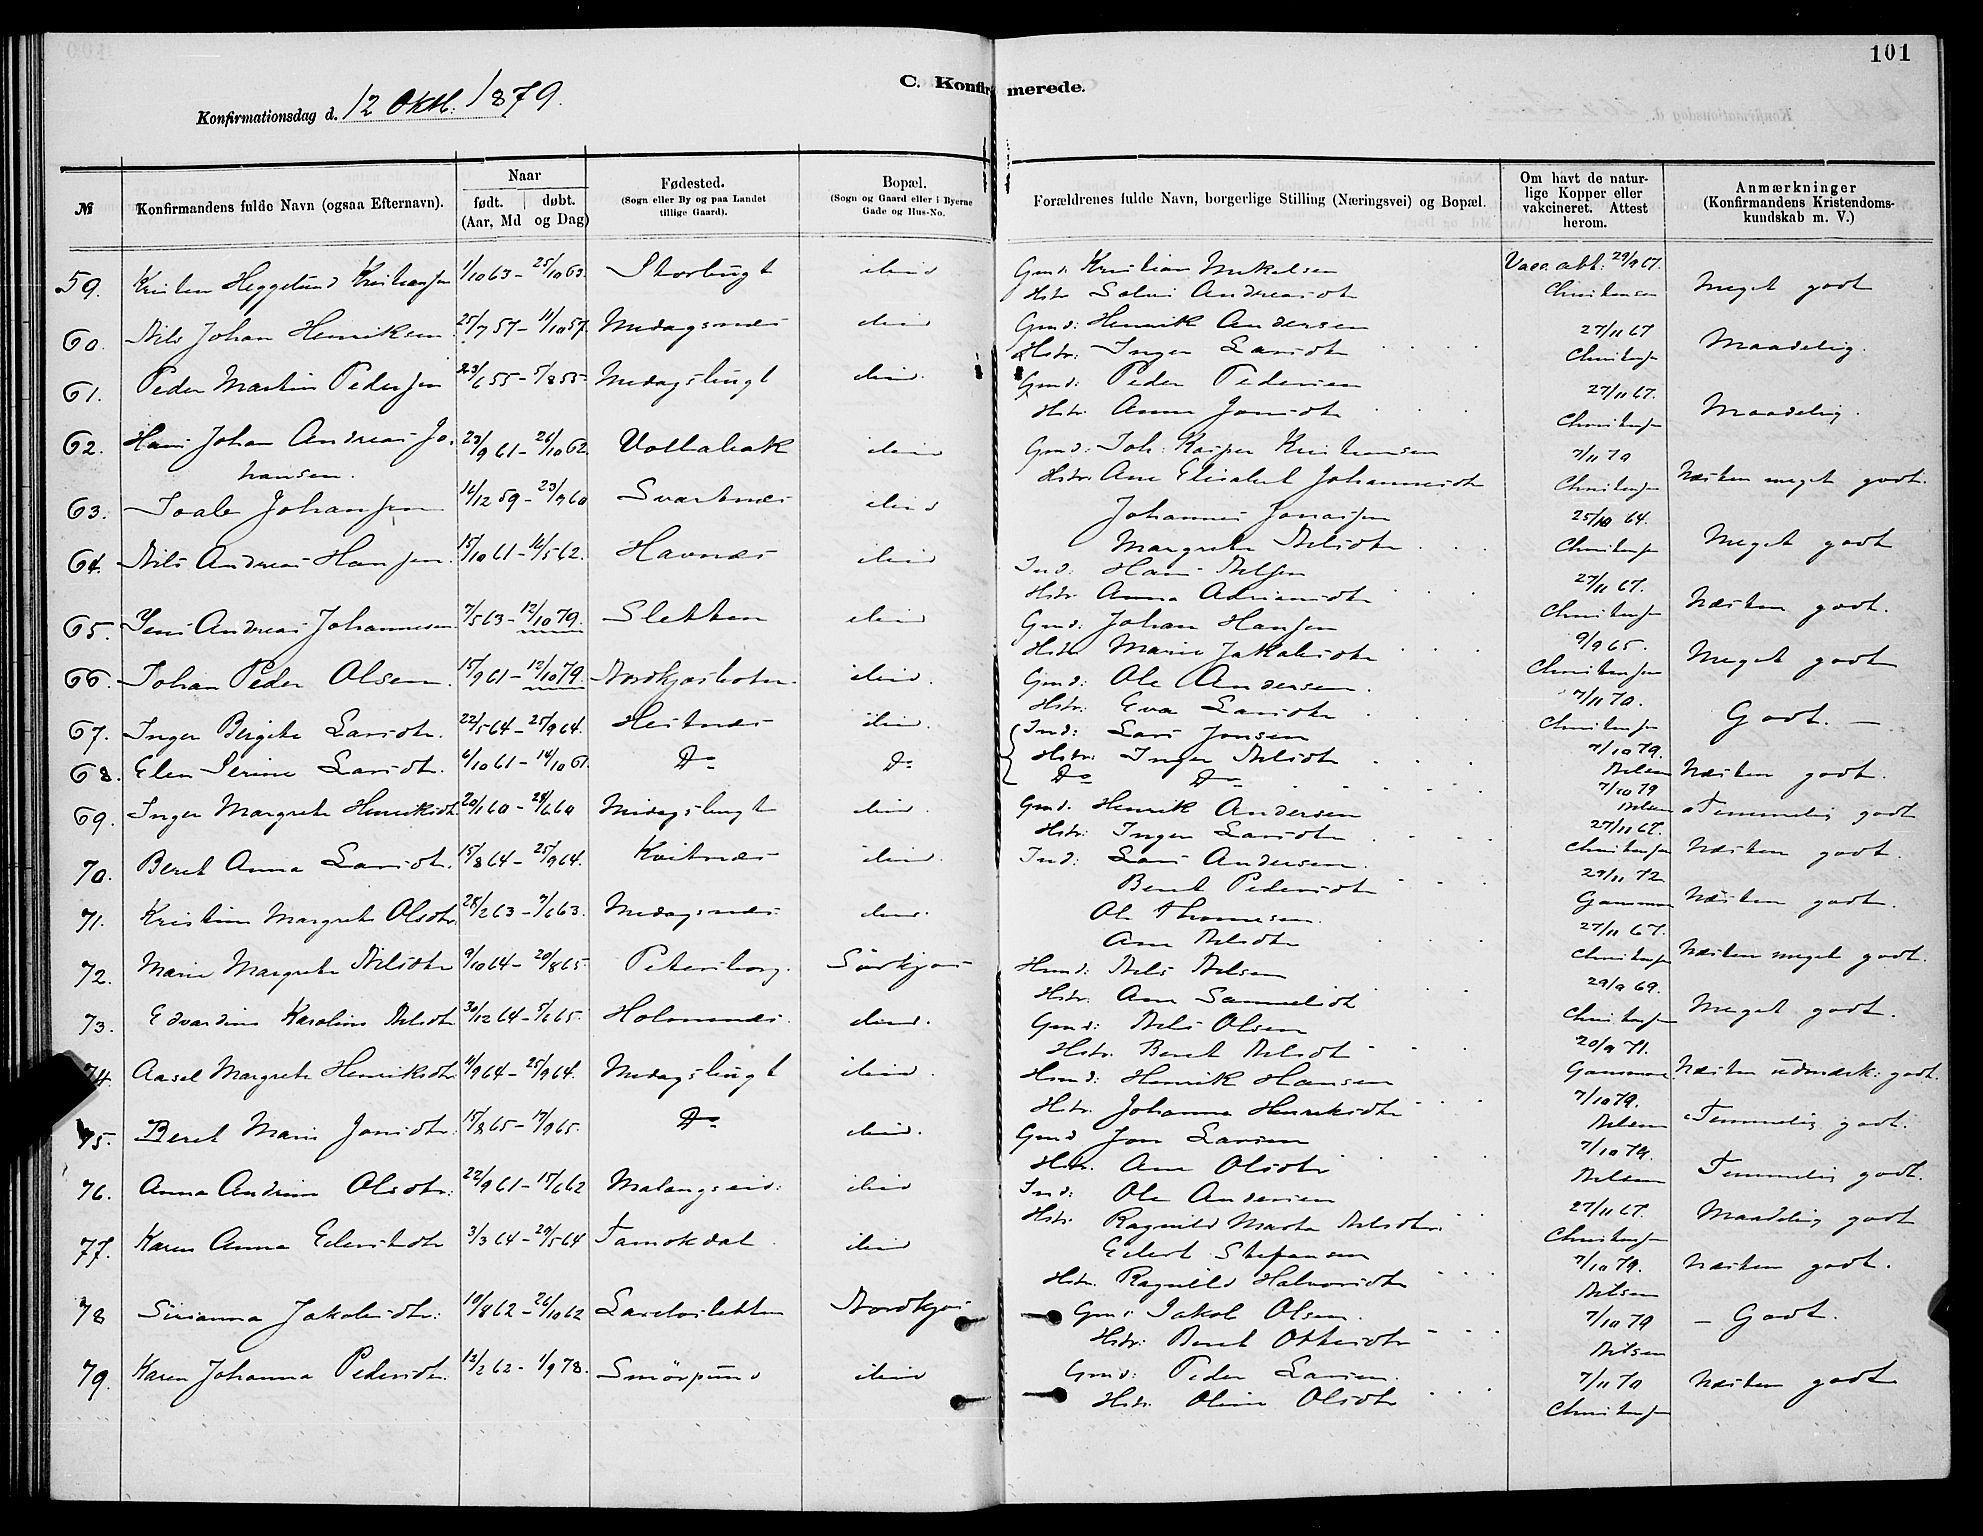 101
C. Konfirmerede.
Konfirmationsdag d. 12 Oktb: 1879.
№
Konfirmandens fulde Navn (ogsaa Efternavn).
Naar
født. døbt.
(Aar, Md og Dag)
Fødested.
(Sogn eller By og paa Landet
tillige Gaard).
Bopæl.
(Sogn og Gaard eller i Byerne
Gade og Hus-No.
Forældrenes fulde Navn, borgerlige Stilling (Næringsvei) og Bopæl.
Om havt de natur-
lige Kopper eller
vakcineret. Attest
herom.
Anmærkninger
(Konfirmandens Kristendoms-
kundskab m. V.)
59. Kristen Heggelund Kristiansen 1/10 63 - 25/10 63. Storbugt
Gmd: Kristian Mikelsen Vacc. att: 29/9 67.
Hstr Andreasdtr Christensen Meget godt
60. Nils Johan Henriksen. 25/7 57 - 11/10 57. Medagsnæs
Gmd: Henrik Andersen 27/11 67
Hstr: Inger Larsdtr Christensen Maadelig.
61. Peder Martin Pedersen 23/6 55 - 5/8 55 Medagsbugt
Gmd: Peder Pedersen 27/11 67.
Hstr. Anna Jonsdtr Christensen Maadelig.
62. Hans Johan Andreas Jo- 23/9 61 - 26/10 62
hansen.
Gmd: Joh: Kasper Kristiansen 7/11 70
Hstr. Ane Elisabet Johannesdtr Christensen Næsten meget godt.
63. Johansen 16/12 59 - 23/9 60 Svartnæs
Johannes Jonassen 25/10 64.
Margrete Nilsdtr Christensen Meget godt
64. Nils Andreas Hansen. 15/10 61 - 16/5 62. Havnæs
Ind: Hans Nilsen 27/11 67.
Hstr Anna Adriansdtr Christensen Næsten godt.
65. Jens Andreas Johannesen 7/5 63 - 12/10 79. Sletten
Gmd: Johan Hansen 9/9 65.
Hstr Marie Jakobsdtr Christensen Meget godt
66. Johan Peder Olsen. 15/9 61 - 12/10 79. Nordkjosbotn.
Gmd: Ole Andersen. 7/11 70.
Hstr. Eva Larsdtr Christensen Godt. -
67. Inger Birgite Larsdtr. 22/5 64 - 25/9 64. Hestnæs
Ind: Lars Jonsen 7/10 79.
Hstr: Inger Nilsdtr Nilsen Næsten godt.
68. Elen Serine Larsdtr. 6/10 61 - 14/10 61. Do Do
Do Do 7/10 79
Nilsen Temmelig godt
69. Inger Margrete Henriksdtr 20/1 60 - 24/6 60 Medagsbugt
Gmd. Henrik Andersen 27/11 67.
Hstr: Inger Larsdtr Christensen Næsten godt.
70. Beret Anna Larsdtr. 15/8 64 - 25/9 64. Kvitnæs
Ind: Lars Andersen. 29/11 72
Beret Pedersdtr Næsten godt.
71. Kristine Margrete Olsdtr. 28/2 63 - 7/6 63. Medagsnæs
Ole Thomesen. 27/11 67.
Ane Nilsdtr Christensen Næsten meget godt.
72. Marie Margrete Nilsdtr 9/10 64 - 20/8 65 Petersborg. Sørkjos
Hmd: Nils Nilsen 29/9 69.
Hstr. Ane Samuelsdt Christensen Meget godt.
73. Edvardine Karoline Nilsdt 30/12 64 - 5/6 65. Holmenæs.
Gmd: Nils Olsen 20/9 71.
Hstr. Beret Nilsdt Næsten udmærk: godt.
74. Aasel Margrete Henriksdtr 11/9 64 - 25/9 64. Medagsbugt
Hmd: Henrik Hansen 7/10 79.
Hstr. Johanna Henriksdtr Nilsen Temmelig godt.
75. Beret Marie Jonsdtr. 15/8 65 - 17/9 65. Do
Gmd Jon Larsen 7/10 79.
Hstr. Ane Olsdtr Nilsen Temmelig godt.
76. Anna Andrine Olsdtr: 22/9 61 - 15/6 62 Malangseid:
Ind: Ole Andersen 27/11 67.
Hstr. Ragnild Marta Nilsdtr. Christensen Maadelig godt
77. Karen Anna Eilertsdtr 3/3 64 - 29/5 64 Tamokdal.
Eilert Stefansen 7/10 79.
Hstr. Ragnild Halvorsdtr Nilsen Næsten godt.
78 Sirianna Jakobsdtr: 19/8 62 - 26/10 62 Nordkjos
Gmd Jakob Olsen. 7/10 79
Hstr: Beret Ottersdtr Nilsen - Godt.
79. Karen Johanna Pedersdtr. 13/2 62 - 1/9 78. Smörpund
Gmd: Peder Larsen. 7/11 70
Hstr. Oline Olsdtr Christensen Næsten godt